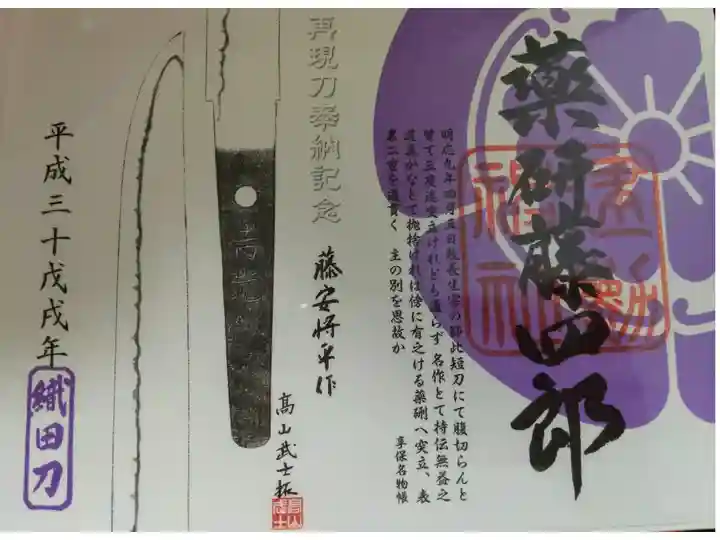 薬研藤四郎
建勲
神社
明応九年四月五日政長生害の節此短刀にて腹切らんと
甞て三度迄突立けれども通らず 名作とて持伝無益之
道具かなとて抛捨ければ傍に有之ける薬硎へ突立、表
裏二重を通貫く 主の別を思故か
享保名物帳
再現刀奉納記念
藤安将平作
高山武士拓
平成三十戊戌年
織田刀